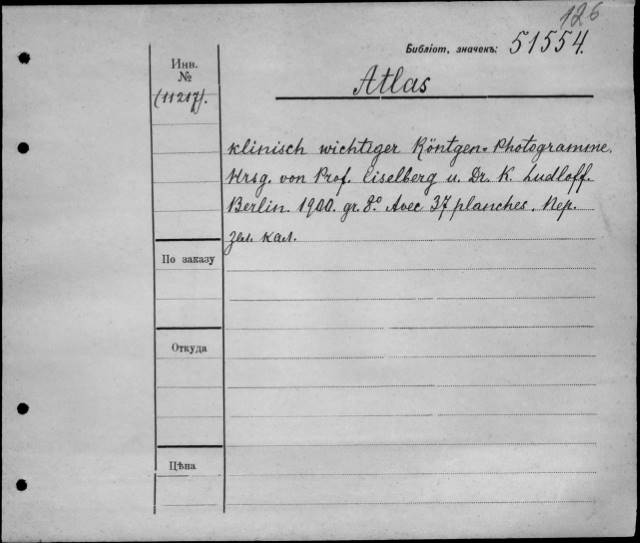 126
Библіот. значекъ: 51554.
Инв.
№
(11217).
Atlas
klinisch wichtiger Röntgen-Photogramme.
Hrsg. von Prof. Eiselberg u. Dr. K. Ludloff.
Berlin. 1900. gr. 8° Avec 37 planches. Пер.
зел. кал.
По заказу
Откуда
Цѣна